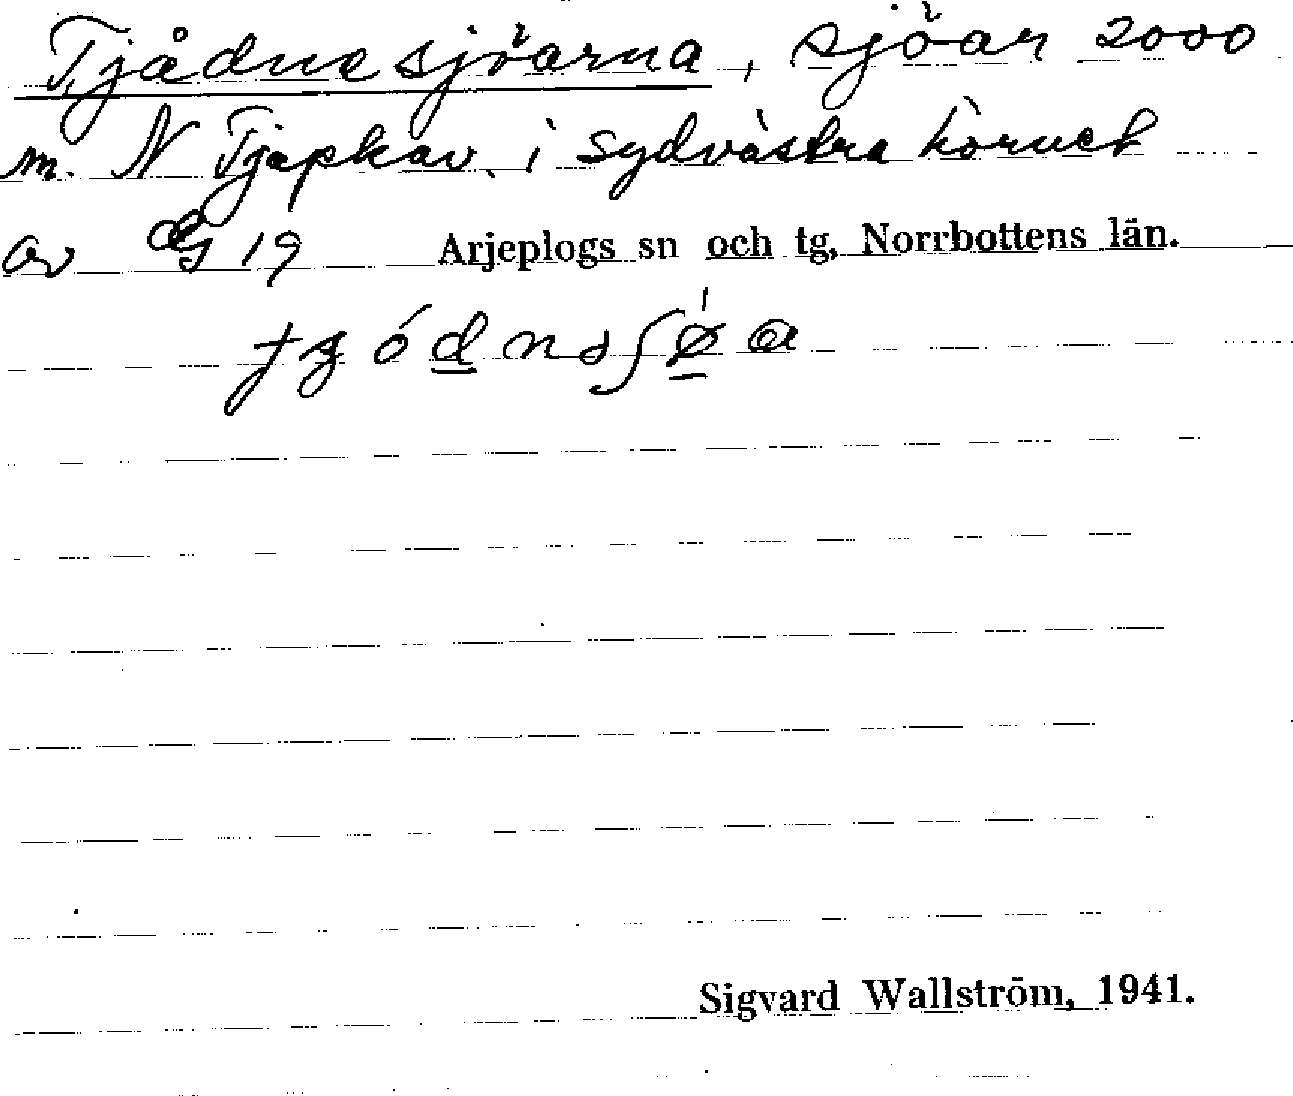 Tjådnesjöarna, sjöar 2000
m. N Tjapkav, i sydvästra hörnet
av dG 19 Arjeplogs sn och tg, Norrbottens län.
Sigvard Wallström, 1941.